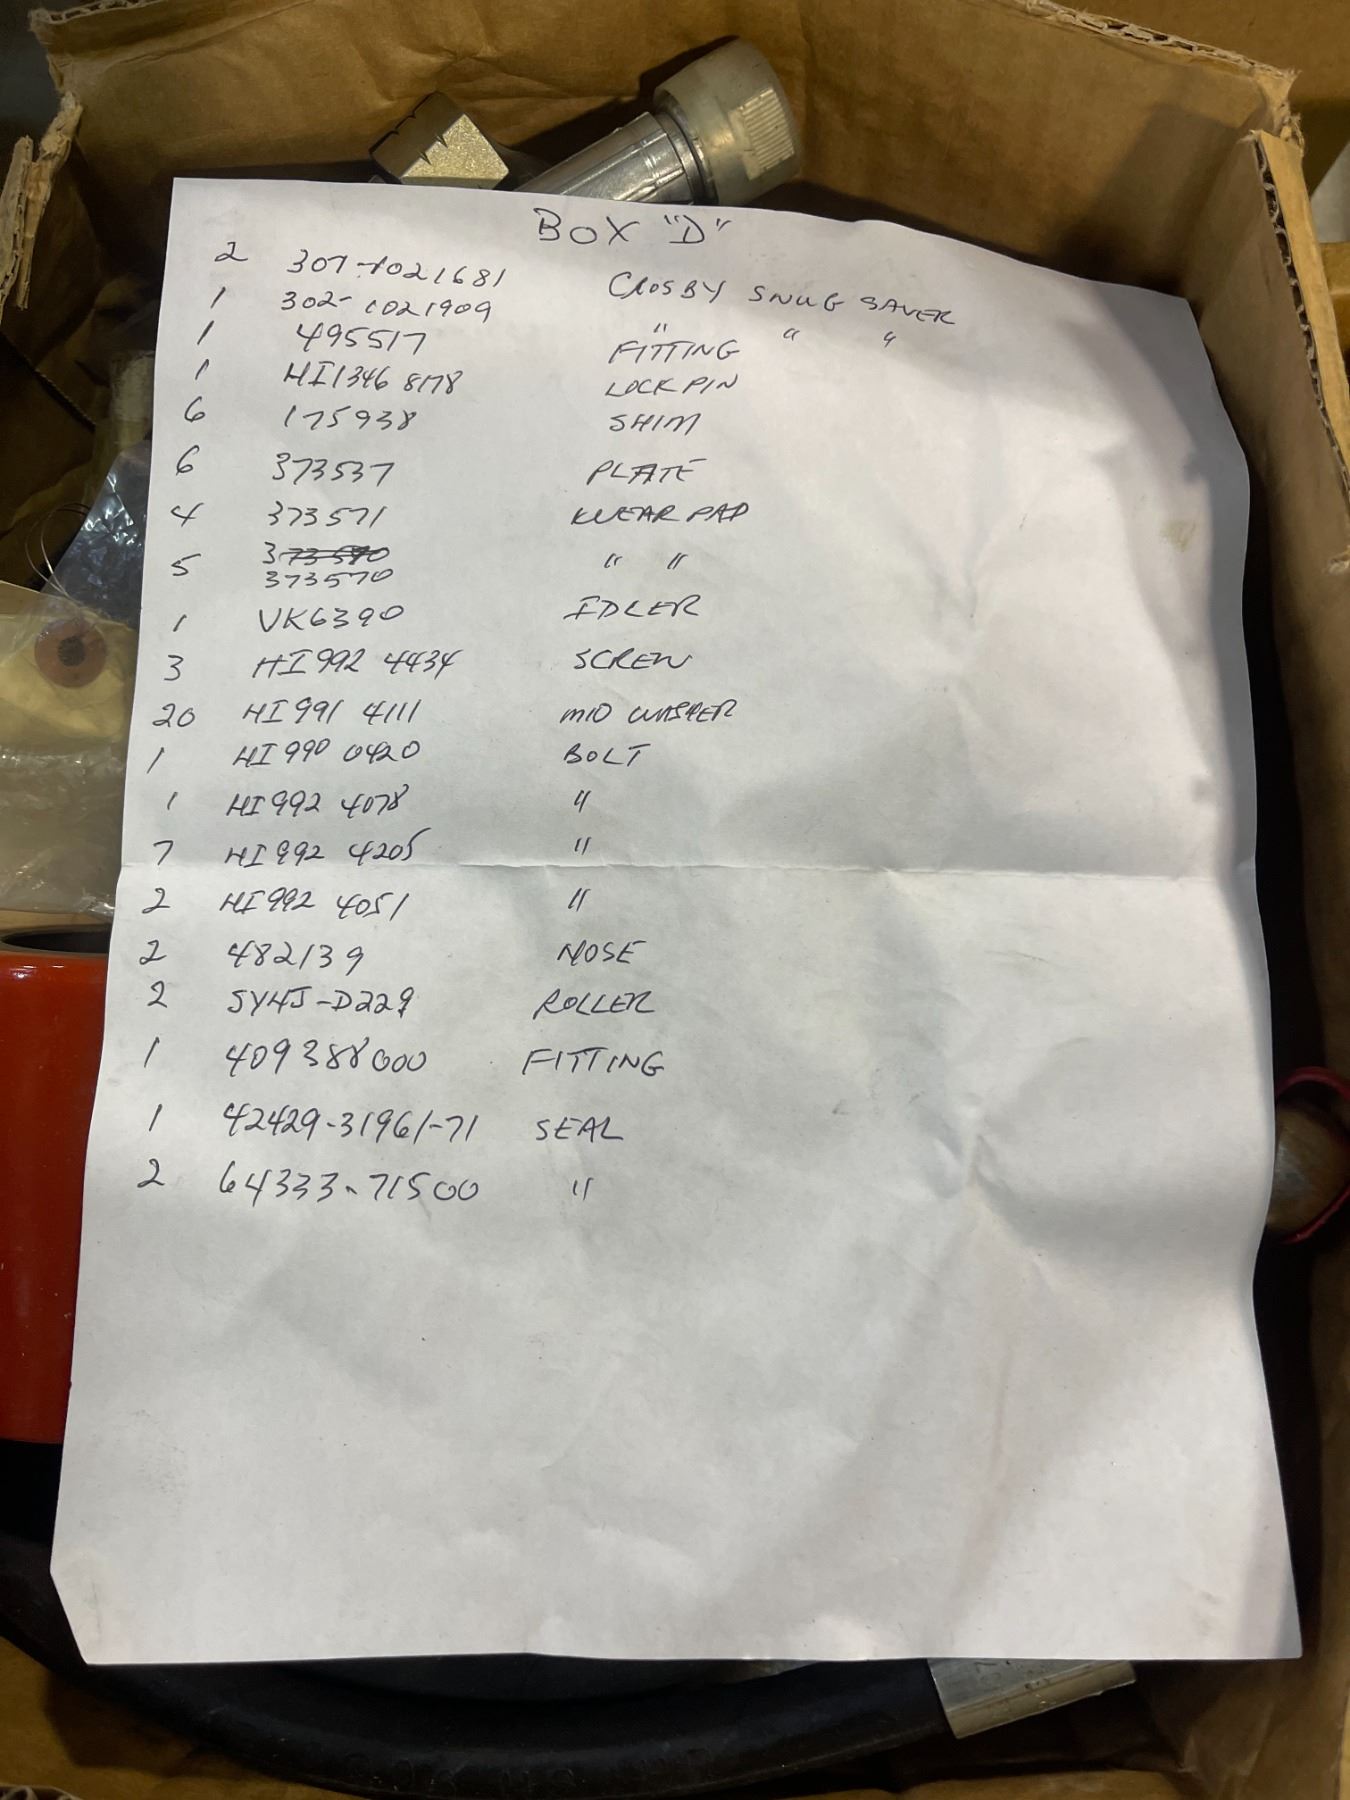 BOX "D"
2 307-1021681 CROSBY SNUG SAVER
1 302-1021909 " " "
1 495517 FITTING
1 HI1346 8178 LOCK PIN
6 175938 SHIM
6 373537 PLATE
4 373571 WEAR PAD
5 373590 " "
373570
1 VK6390 IDLER
3 HI992 4434 SCREW
20 HI991 4111 M10 WASHER
1 HI990 0420 BOLT
1 HI992 4078 "
7 HI992 4205 "
2 HI992 4051 "
2 482139 HOSE
2 SY4J-D229 ROLLER
1 409388000 FITTING
1 42429-31961-71 SEAL
2 64333-71500 "